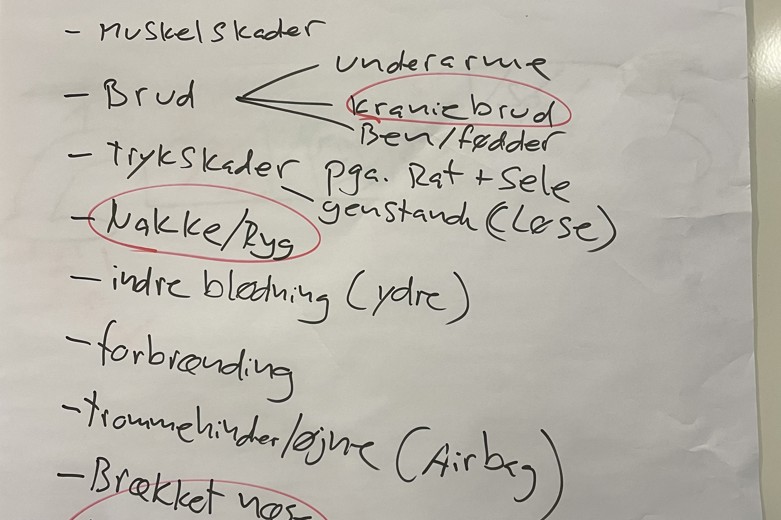 - Muskelskader
underarme
- Brud
kraniebrud
Ben/fødder
- Trykskader pga. Rat + Sele
genstande (Løse)
- Nakke/Ryg
- indre blødning (ydre)
- forbrænding
- trommehinder/øjne (Airbag)
- Brækket næse